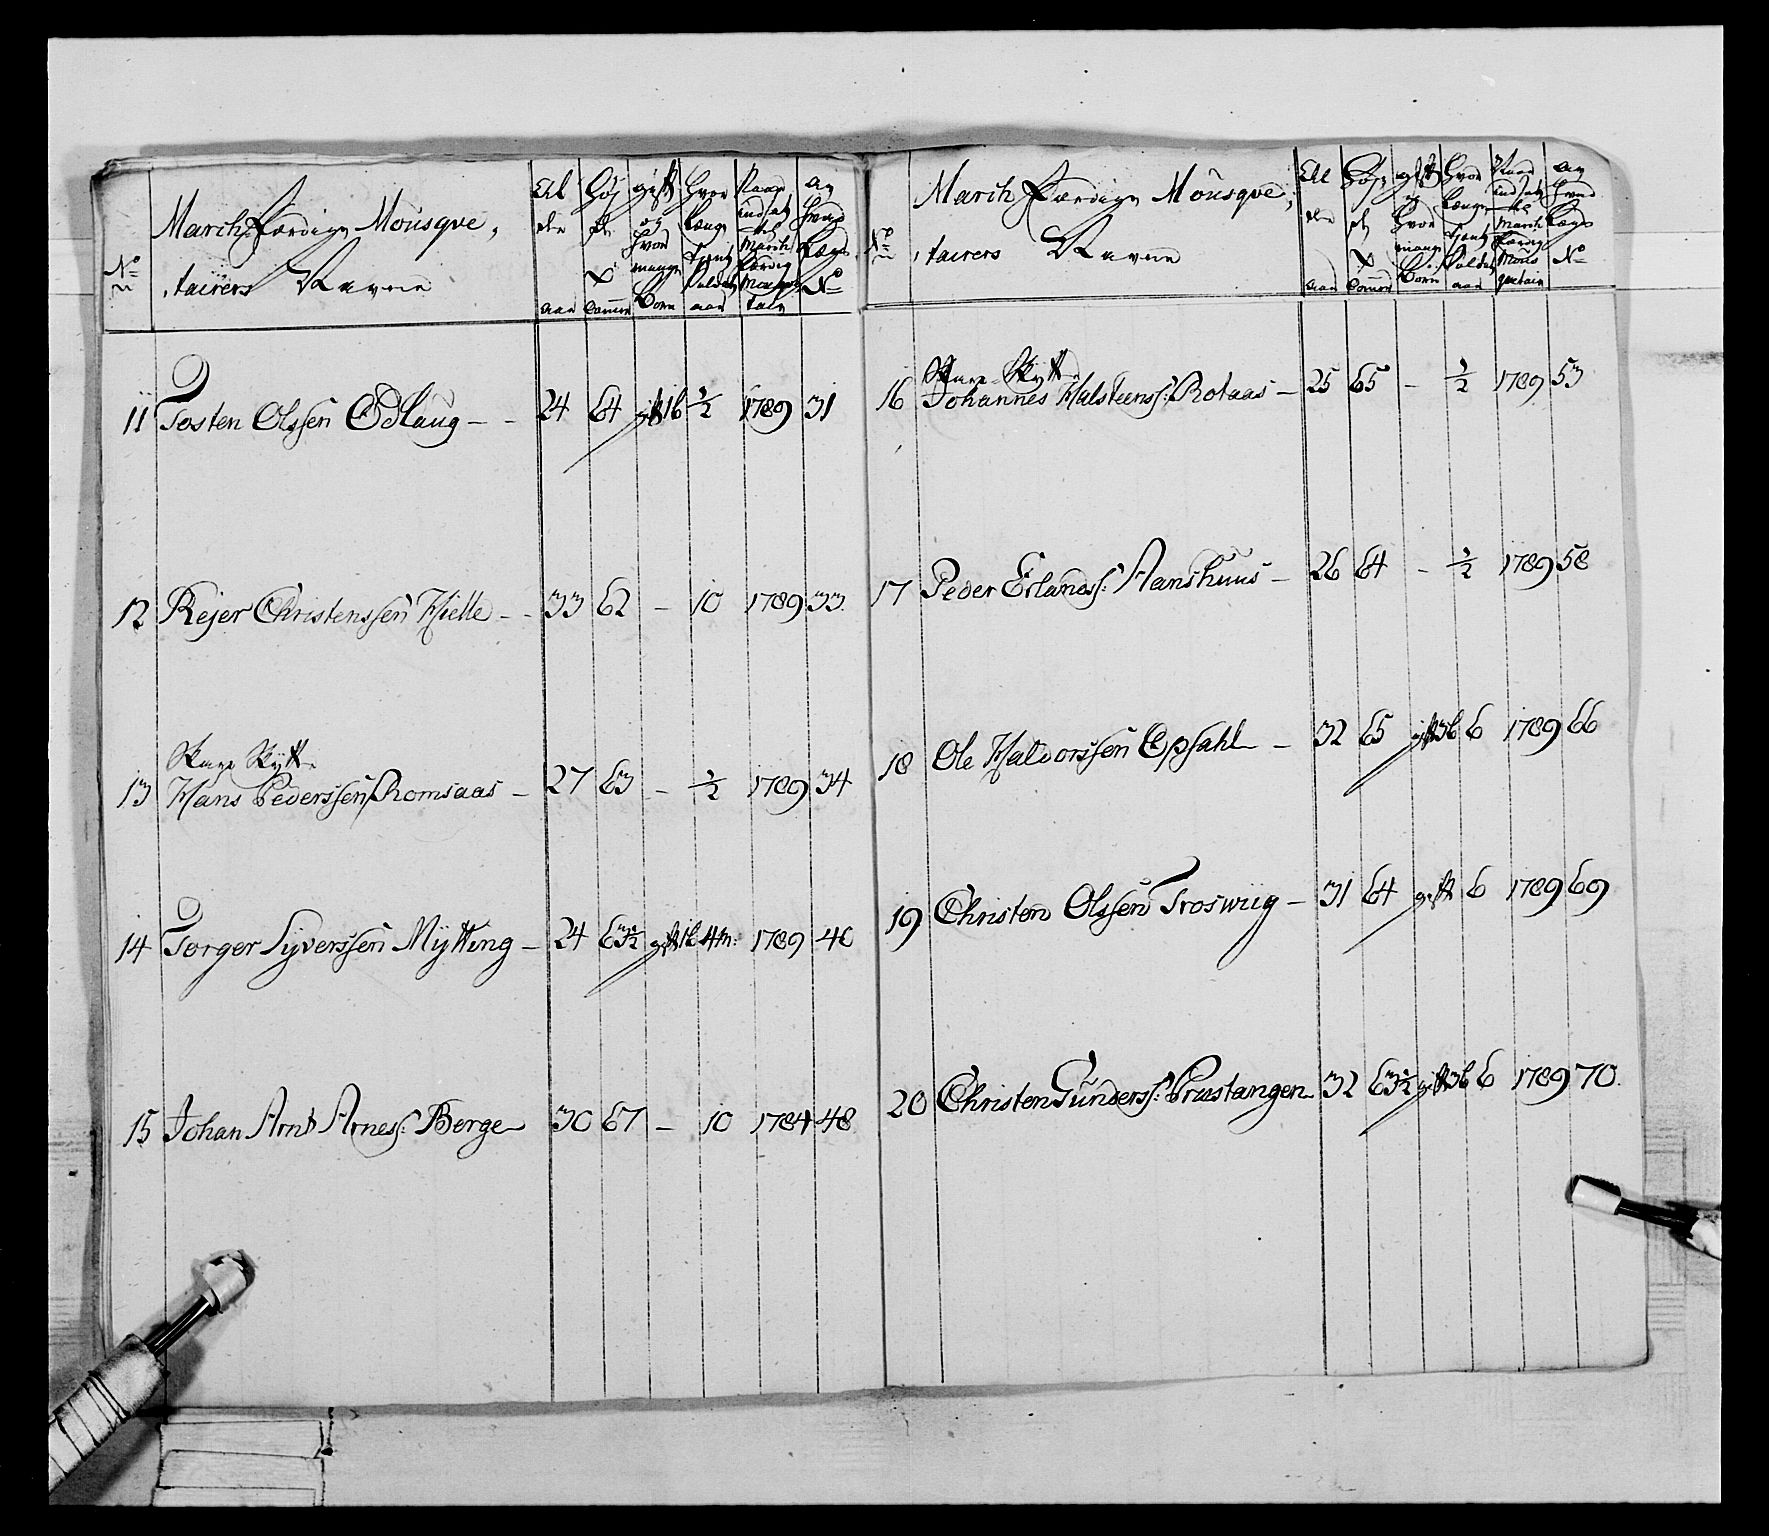 No
March færdige Mousqve,
,tairers Navne
Al
der
aar
Høj
de
Tommer
gift
og
hvor
mange
Børn
Hvor
længe
tjent
Soldat
aar
Naar
indsat
til
March
færdig
Mousqve
tair
Av
hvad
Lægs
No
11 Tosten Olssen Odlaug - - 24 64 gift 1b ½ 1789 31
12 Rejer Christenssen Kjelle - - 33 62 - 10 1789 33
Skarp Skytte
13 Hans Pederssen Romsaas - 27 63 - ½ 1789 34
14 Torger Syverssen Mytting - 24 63½ gift 1b 4m: 1789 46
15 Johan Arnt Arness: Berge 30 67 - 10 1784 48
No
March færdige Mousqve,
,tairers Navne
Al
der
aar
Høj
de
Tommer
gift
og
hvor
mange
Børn
Hvor
længe
tjent
Soldat
aar
Naar
indsat
til
March
færdig
Mous
qvetair
Av
hvad
Lægs
No
Skarp Skytte
16 Johannes Halsteens: Rotaas - 25 65 - ½ 1789 53
17 Peder Erlands: Aanshuus - 26 64 - ½ 1789 58
18 Ole Halvorssen Opsahl - 32 65 gift 3b 6 1789 66
19 Christen Olssen Troswiig - 31 64 gift 6 1789 69
20 Christen Gunders: Prustangen 32 63½ gift 3b 6 1789 70.